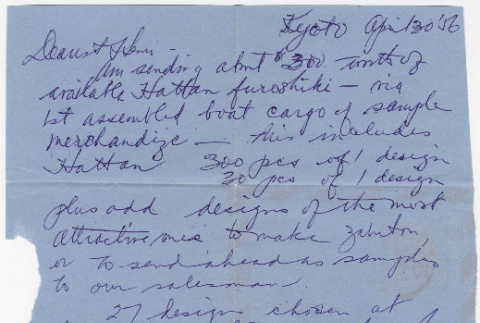 Kyoto April 30 '56
Dearest Henri -
Am sending about $300. worth of
available Hattan furoshiki - via
1st assembled boat cargo of sample
merchandize - this includes
Hattan 300 pcs of 1 design
20 pcs of 1 design
plus odd designs of the most
attractive ones to make zabuton,
or to send ahead as samples
to our salesman.
27 designs chosen at